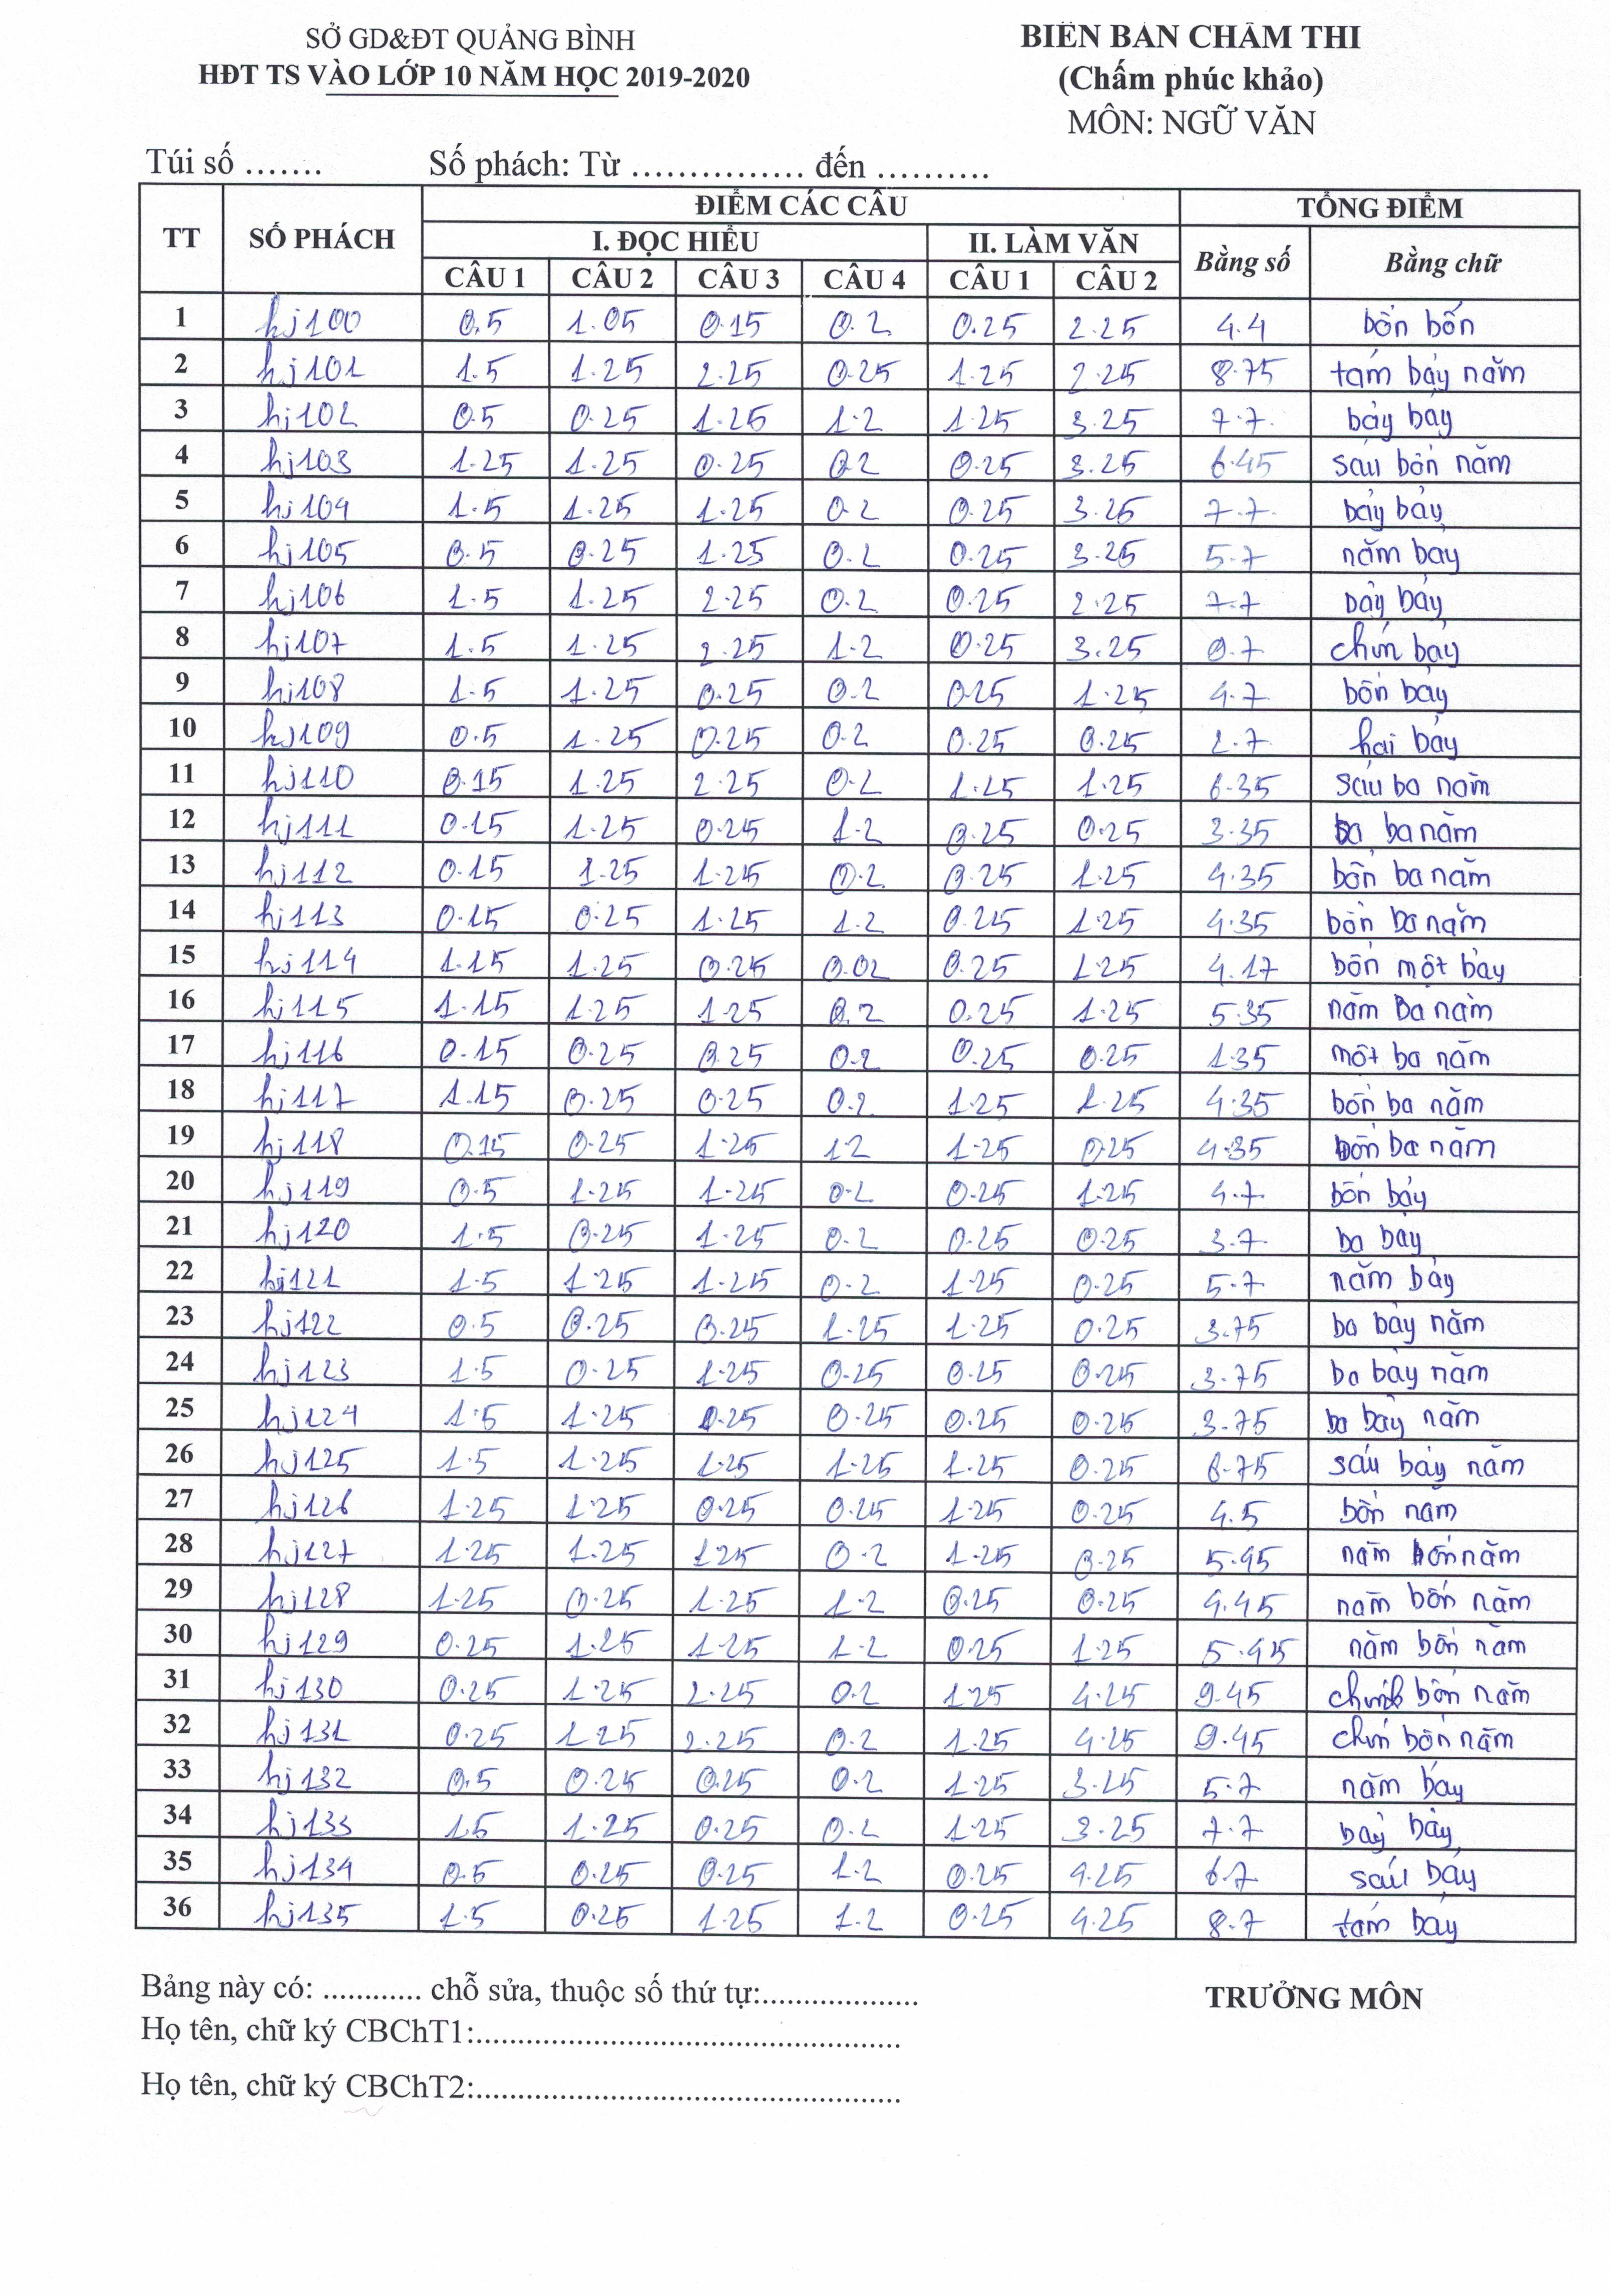 SỞ GD&ĐT QUẢNG BÌNH
HĐT TS VÀO LỚP 10 NĂM HỌC 2019-2020
BIÊN BẢN CHẤM THI
(Chấm phúc khảo)
MÔN: NGỮ VĂN
Túi số ....... Số phách: Từ ............... đến ..........
TT SỐ PHÁCH ĐIỂM CÁC CÂU TỔNG ĐIỂM
I. ĐỌC HIỂU II. LÀM VĂN Bằng số Bằng chữ
CÂU 1 CÂU 2 CÂU 3 CÂU 4 CÂU 1 CÂU 2
1 hj100 0.5 1.05 0.15 0.2 0.25 2.25 4.4 bốn bốn
2 hj101 1.5 1.25 2.25 0.25 1.25 2.25 8.75 tám bảy năm
3 hj102 0.5 0.25 1.25 1.2 1.25 3.25 7.7 bảy bảy
4 hj103 1.25 1.25 0.25 0.2 0.25 3.25 6.45 sáu bốn năm
5 hj104 1.5 1.25 1.25 0.2 0.25 3.25 7.7 bảy bảy
6 hj105 0.5 0.25 1.25 0.2 0.25 3.25 5.7 năm bảy
7 hj106 1.5 1.25 2.25 0.2 0.25 2.25 7.7 bảy bảy
8 hj107 1.5 1.25 2.25 1.2 0.25 3.25 9.7 chín bảy
9 hj108 1.5 1.25 0.25 0.2 0.25 1.25 4.7 bốn bảy
10 hj109 0.5 1.25 0.25 0.2 0.25 0.25 2.7 hai bảy
11 hj110 0.15 1.25 2.25 0.2 1.25 1.25 6.35 sáu ba năm
12 hj111 0.15 1.25 0.25 1.2 0.25 0.25 3.35 ba ba năm
13 hj112 0.15 1.25 1.25 0.2 0.25 1.25 4.35 bốn ba năm
14 hj113 0.15 0.25 1.25 1.2 0.25 1.25 4.35 bốn ba năm
15 hj114 1.15 1.25 0.25 0.02 0.25 1.25 4.17 bốn một bảy
16 hj115 1.15 1.25 1.25 0.2 0.25 1.25 5.35 năm ba năm
17 hj116 0.15 0.25 0.25 0.2 0.25 0.25 1.35 một ba năm
18 hj117 1.15 0.25 0.25 0.2 1.25 1.25 4.35 bốn ba năm
19 hj118 0.15 0.25 1.25 1.2 1.25 0.25 4.35 bốn ba năm
20 hj119 0.5 1.25 1.25 0.2 0.25 1.25 4.7 bốn bảy
21 hj120 1.5 0.25 1.25 0.2 0.25 0.25 3.7 ba bảy
22 hj121 1.5 1.25 1.25 0.2 1.25 0.25 5.7 năm bảy
23 hj122 0.5 0.25 0.25 1.25 1.25 0.25 3.75 ba bảy năm
24 hj123 1.5 0.25 1.25 0.25 0.25 0.25 3.75 ba bảy năm
25 hj124 1.5 1.25 0.25 0.25 0.25 0.25 3.75 ba bảy năm
26 hj125 1.5 1.25 1.25 1.25 1.25 0.25 6.75 sáu bảy năm
27 hj126 1.25 1.25 0.25 0.25 1.25 0.25 4.5 bốn năm
28 hj127 1.25 1.25 1.25 0.2 1.25 0.25 5.45 năm bốn năm
29 hj128 1.25 0.25 1.25 1.2 0.25 0.25 4.45 năm bốn năm
30 hj129 0.25 1.25 1.25 1.2 0.25 1.25 5.45 năm bốn năm
31 hj130 0.25 1.25 2.25 0.2 1.25 4.25 9.45 chín bốn năm
32 hj131 0.25 1.25 2.25 0.2 1.25 4.25 9.45 chín bốn năm
33 hj132 0.5 0.25 0.25 0.2 1.25 3.25 5.7 năm bảy
34 hj133 1.5 1.25 0.25 0.2 1.25 3.25 7.7 bảy bảy
35 hj134 0.5 0.25 0.25 1.2 0.25 4.25 6.7 sáu bảy
36 hj135 1.5 0.25 1.25 1.2 0.25 4.25 8.7 tám bảy
Bảng này có: ............ chỗ sửa, thuộc số thứ tự:................... TRƯỞNG MÔN
Họ tên, chữ ký CBChT1:....................................................
Họ tên, chữ ký CBChT2:....................................................